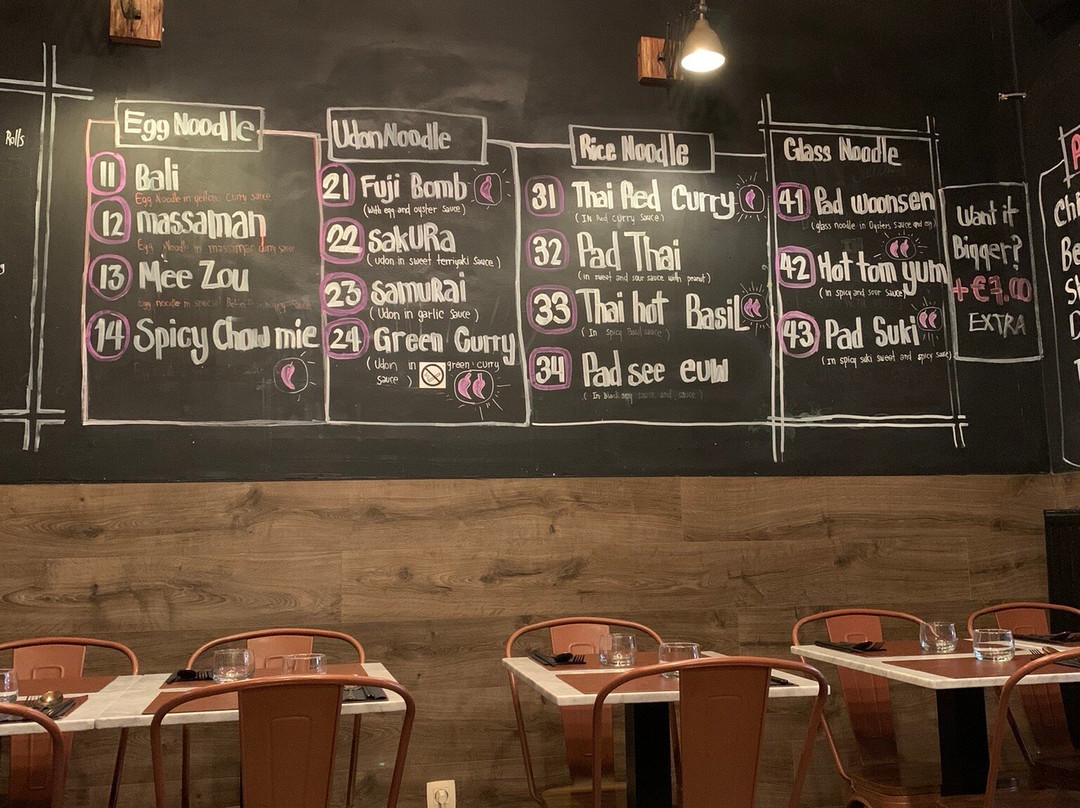 Rolls
Egg Noodle
11 Bali
Egg Noodle in yellow curry sauce
12 massaman
Egg Noodle in massaman curry sauce
13 Mee Zou
Egg noodle in special
14 Spicy Chow mie
Udon Noodle
21 Fuji Bomb
(with egg and oyster sauce)
22 SakURa
(udon in sweet terriyaki sauce)
23 SamuRai
(Udon in garlic sauce)
24 Green Curry
(Udon in green curry
sauce)
Rice Noodle
31 Thai Red Curry
(IN Red curry sauce)
32 Pad Thai
(in sweet and sour sauce with peanut)
33 Thai hot Basil
(In spicy Basil sauce)
34 Pad see euw
(In black soy sauce and sauce)
Glass Noodle
41 Pad woonsen
(glass noodle in Oysters sauce and egg)
42 Hot tom yum
(in spicy and sour sauce)
43 Pad Suki
(in spicy suki sweet and spicy sauce)
Want it
Bigger?
+€3,00
EXTRA